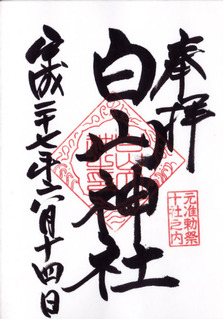 奉拝
元准勅祭
十社之内
白山神社
平成二十七年六月十四日